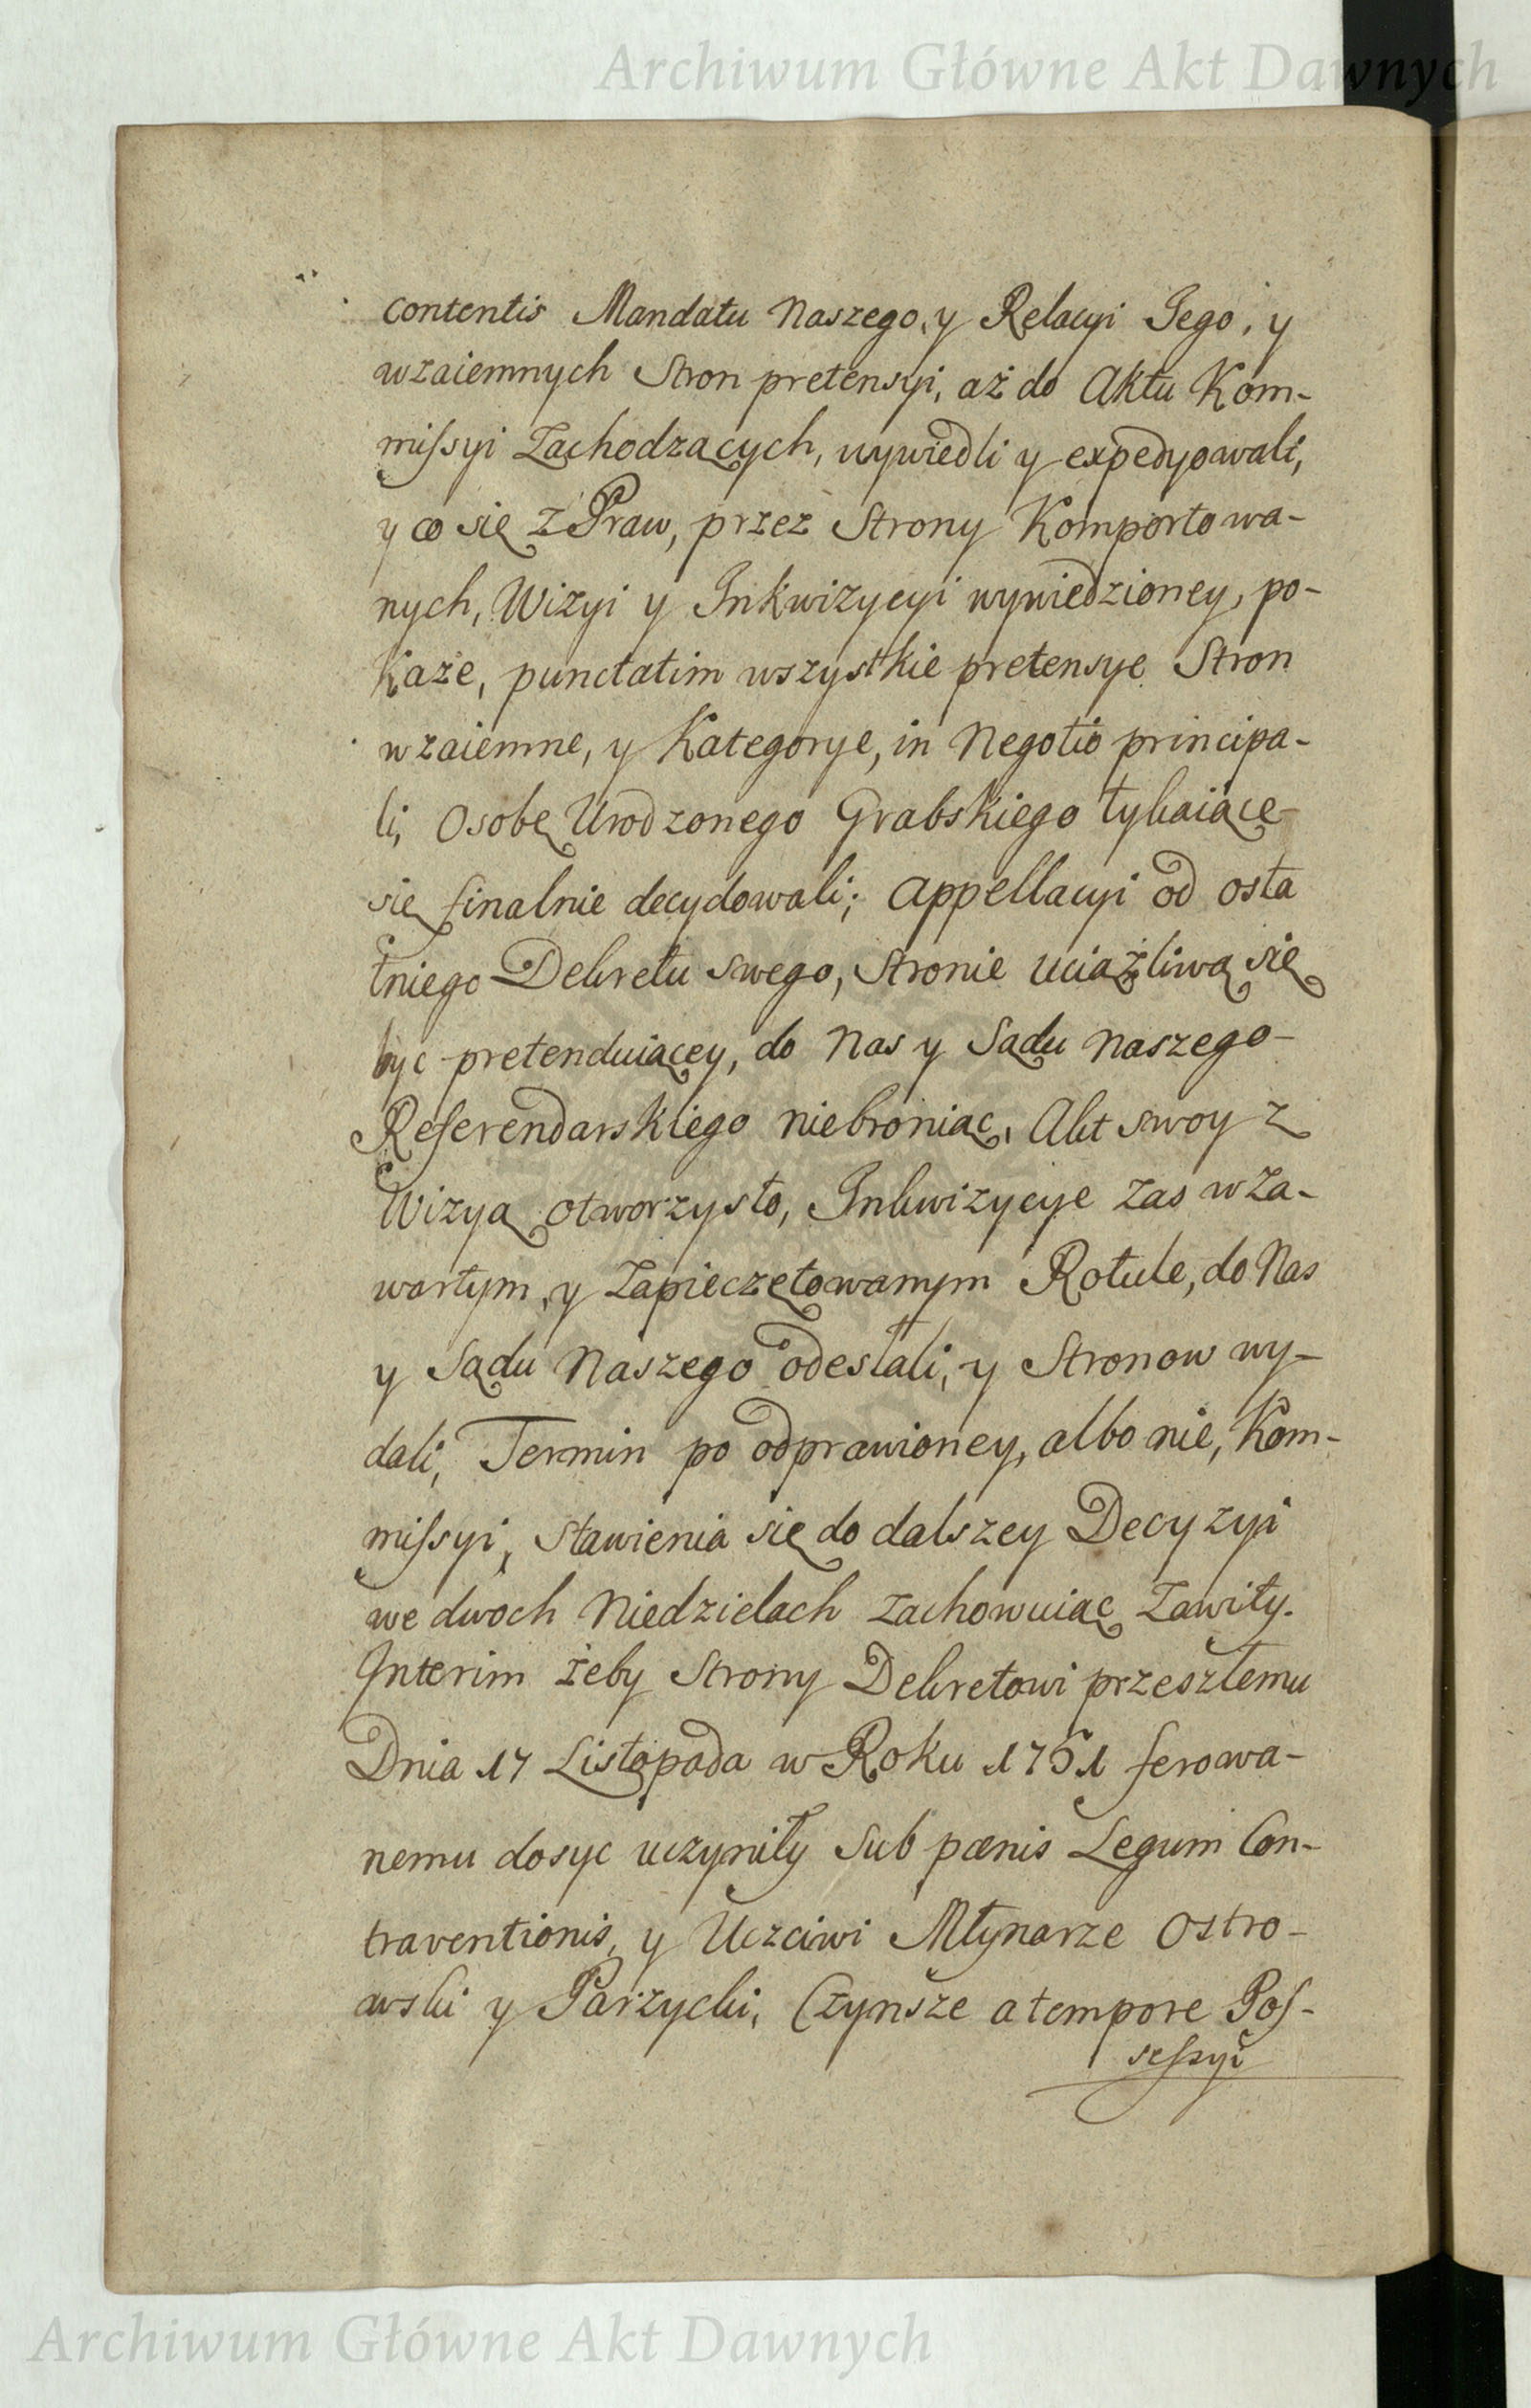 Archiwum Główne Akt Dawnych
contentis Mandatu Naszego, y Relacyi Jego, y
wzaiemnych Stron pretensyi, aż do Aktu Kom-
miſsyi Zachodzących, wywiedli y expedyowali,
y co się z Praw, przez Strony Komportowa-
nych, Wizyi y Inkwizycyi wywiedzioney, po-
każe, punctatim wszystkie pretensye Stron
wzaiemne, y Kategorye, in Negotio principa-
li, Osobę Urodzonego Grabskiego tykaiące-
się finalnie decydowali; Appellacyi od osta
tniego Dekretu swego, Stronie uciążliwą się
byc pretenduiącey, do Nas y Sądu Naszego-
Referendarskiego niebroniąc, Akt swoy z
Wizyą otworzysto, Inkwizycye zas w Za-
wartym, y Zapieczętowanym Rotule, do Nas
y Sądu Naszego odesłali, y Stronow wy-
dali, Termin po odprawioney, albo nie, Kom-
miſsyi, stawienia się do dalszey Decyzyi
we dwoch Niedzielach zachowuiąc Zawity.
Interim żeby Strony Dekretowi przeszłemu
Dnia 17 Listopada w Roku 1751 ferowa-
nemu dosyc uczyniły Sub pœnis Legum Con-
traventionis, y Uczciwi Młynarze Ostro-
wski y Parzycki, Czynsze a tempore Poſ-
seſsyi
Archiwum Główne Akt Dawnych